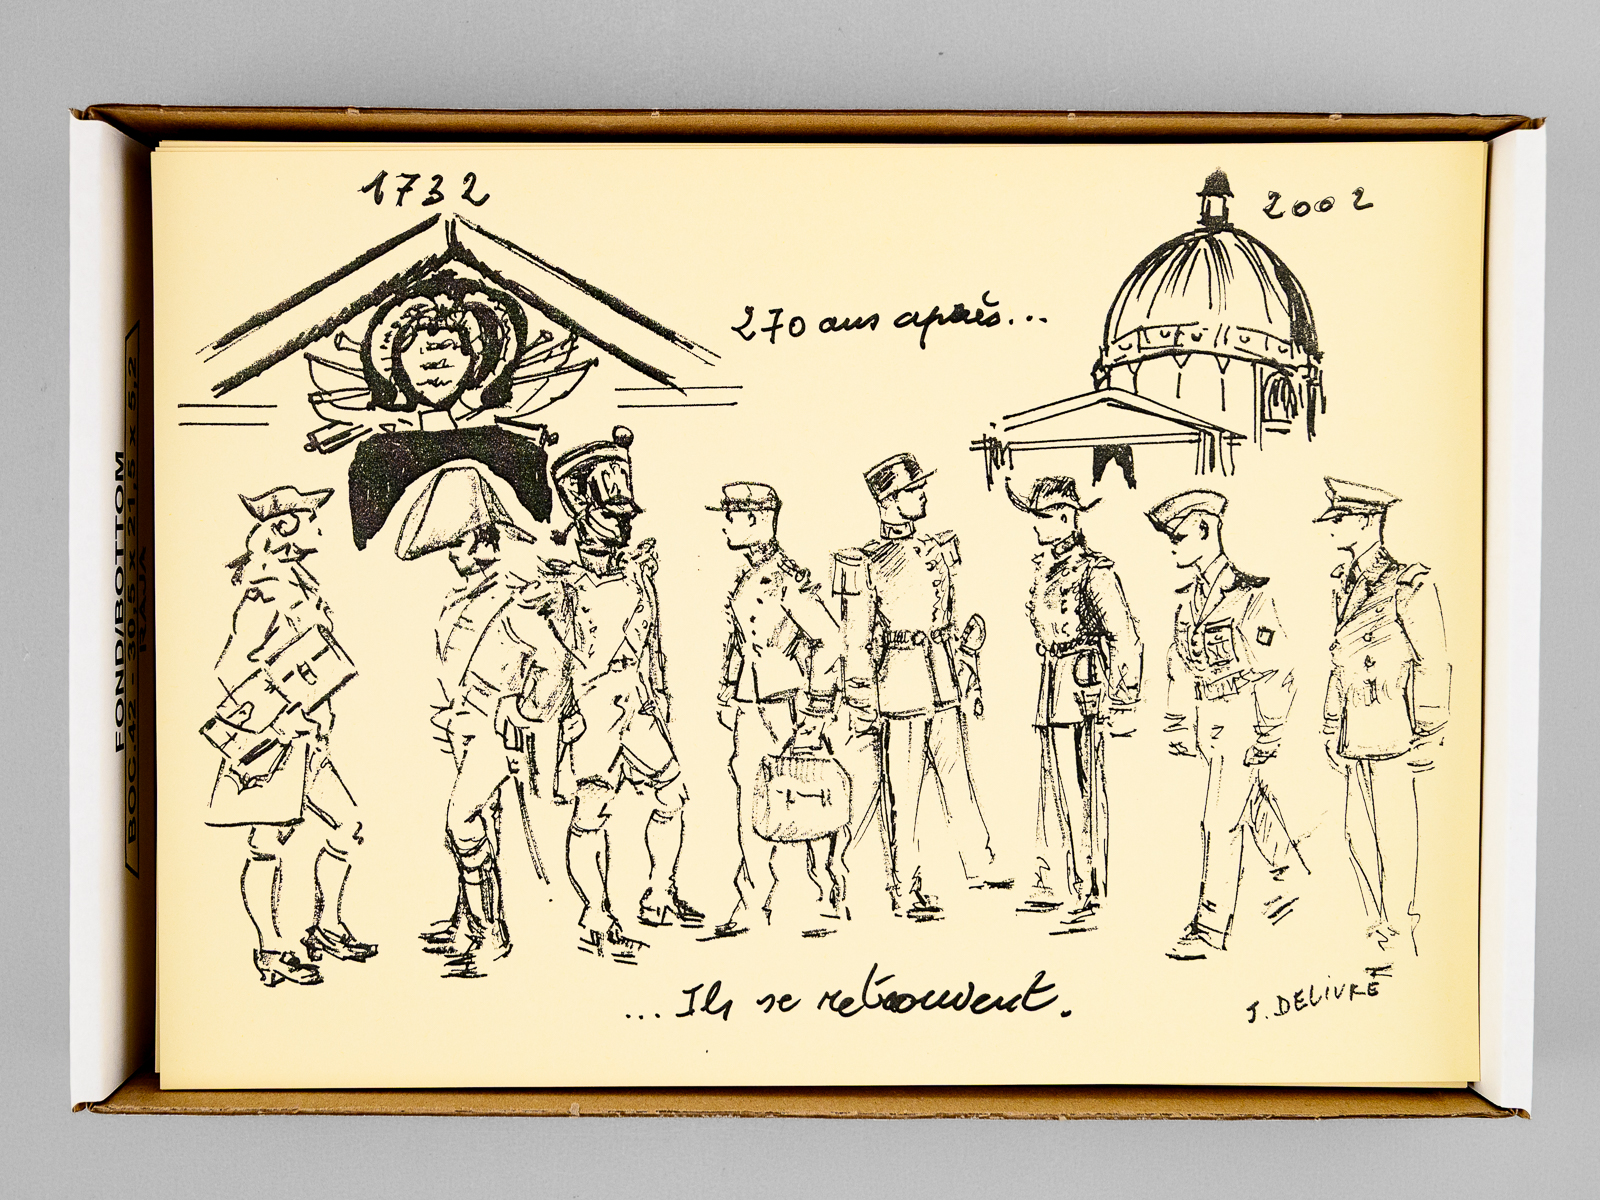 1732
2002
270 ans après...
... Ils se retrouvent.
J. DELIVRÉ
FOND/BOTTOM
BOC.42 - 30,5 x 21,5 x 5,2
RAJA